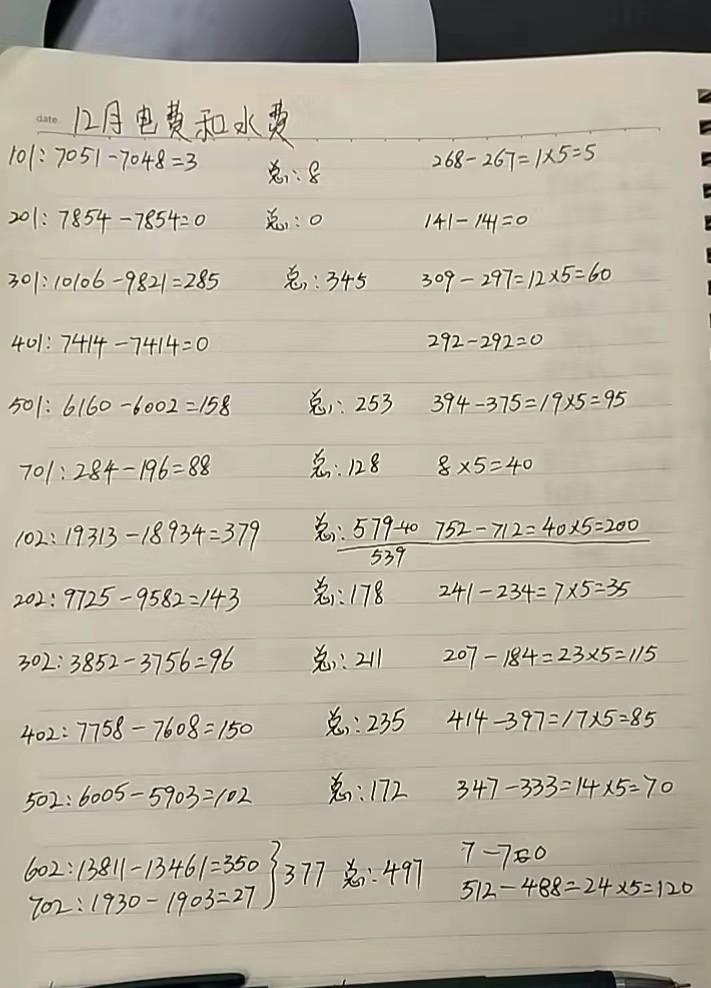 date
12月电费和水费
101: 7051-7048=3 总: 8 268-267=1×5=5
201: 7854-7854=0 总: 0 141-141=0
301: 10106-9821=285 总: 345 309-297=12×5=60
401: 7414-7414=0 292-292=0
501: 6160-6002=158 总: 253 394-375=19×5=95
701: 284-196=88 总: 128 8×5=40
102: 19313-18934=379 总: 579-40 752-712=40×5=200
539
202: 9725-9582=143 总: 178 241-234=7×5=35
302: 3852-3756=96 总: 211 207-184=23×5=115
402: 7758-7608=150 总: 235 414-397=17×5=85
502: 6005-5903=102 总: 172 347-333=14×5=70
602: 13811-13461=350 } 377 总: 497 7-7=0
702: 1930-1903=27 512-488=24×5=120